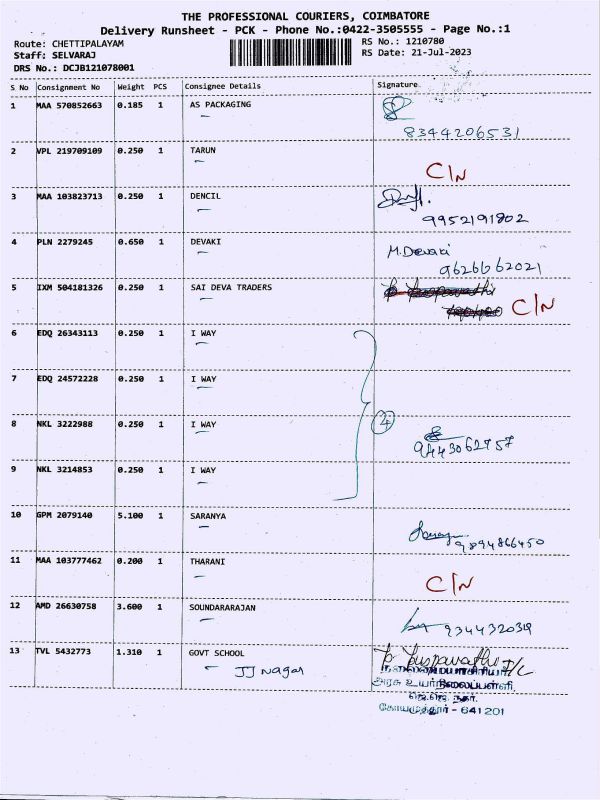 THE PROFESSIONAL COURIERS, COIMBATORE
Delivery Runsheet - PCK - Phone No.:0422-3505555 - Page No.:1
Route: CHETTIPALAYAM RS No.: 1210780
Staff: SELVARAJ RS Date: 21-Jul-2023
DRS No.: DCJB121078001
S No Consignment No Weight PCS Consignee Details Signature
1 MAA 570852663 0.185 1 AS PACKAGING
8344206531
2 VPL 219709109 0.250 1 TARUN
C/N
3 MAA 103823713 0.250 1 DENCIL
9952191802
4 PLN 2279245 0.650 1 DEVAKI M.Devaki
9626662021
5 IXM 504181326 0.250 1 SAI DEVA TRADERS
C/N
6 EDQ 26343113 0.250 1 I WAY
7 EDQ 24572228 0.250 1 I WAY
8 NKL 3222988 0.250 1 I WAY 4
9443062757
9 NKL 3214853 0.250 1 I WAY
10 GPM 2079140 5.100 1 SARANYA
9894866450
11 MAA 103777462 0.200 1 THARANI
C/N
12 AMD 26630758 3.600 1 SOUNDARARAJAN
9344320319
13 TVL 5432773 1.310 1 GOVT SCHOOL P. Puspavathi
JJ Nagar
அரசு உயர்நிலைப்பள்ளி
ஜெ.ஜெ. நகர்
கோயமுத்தூர் - 641 201